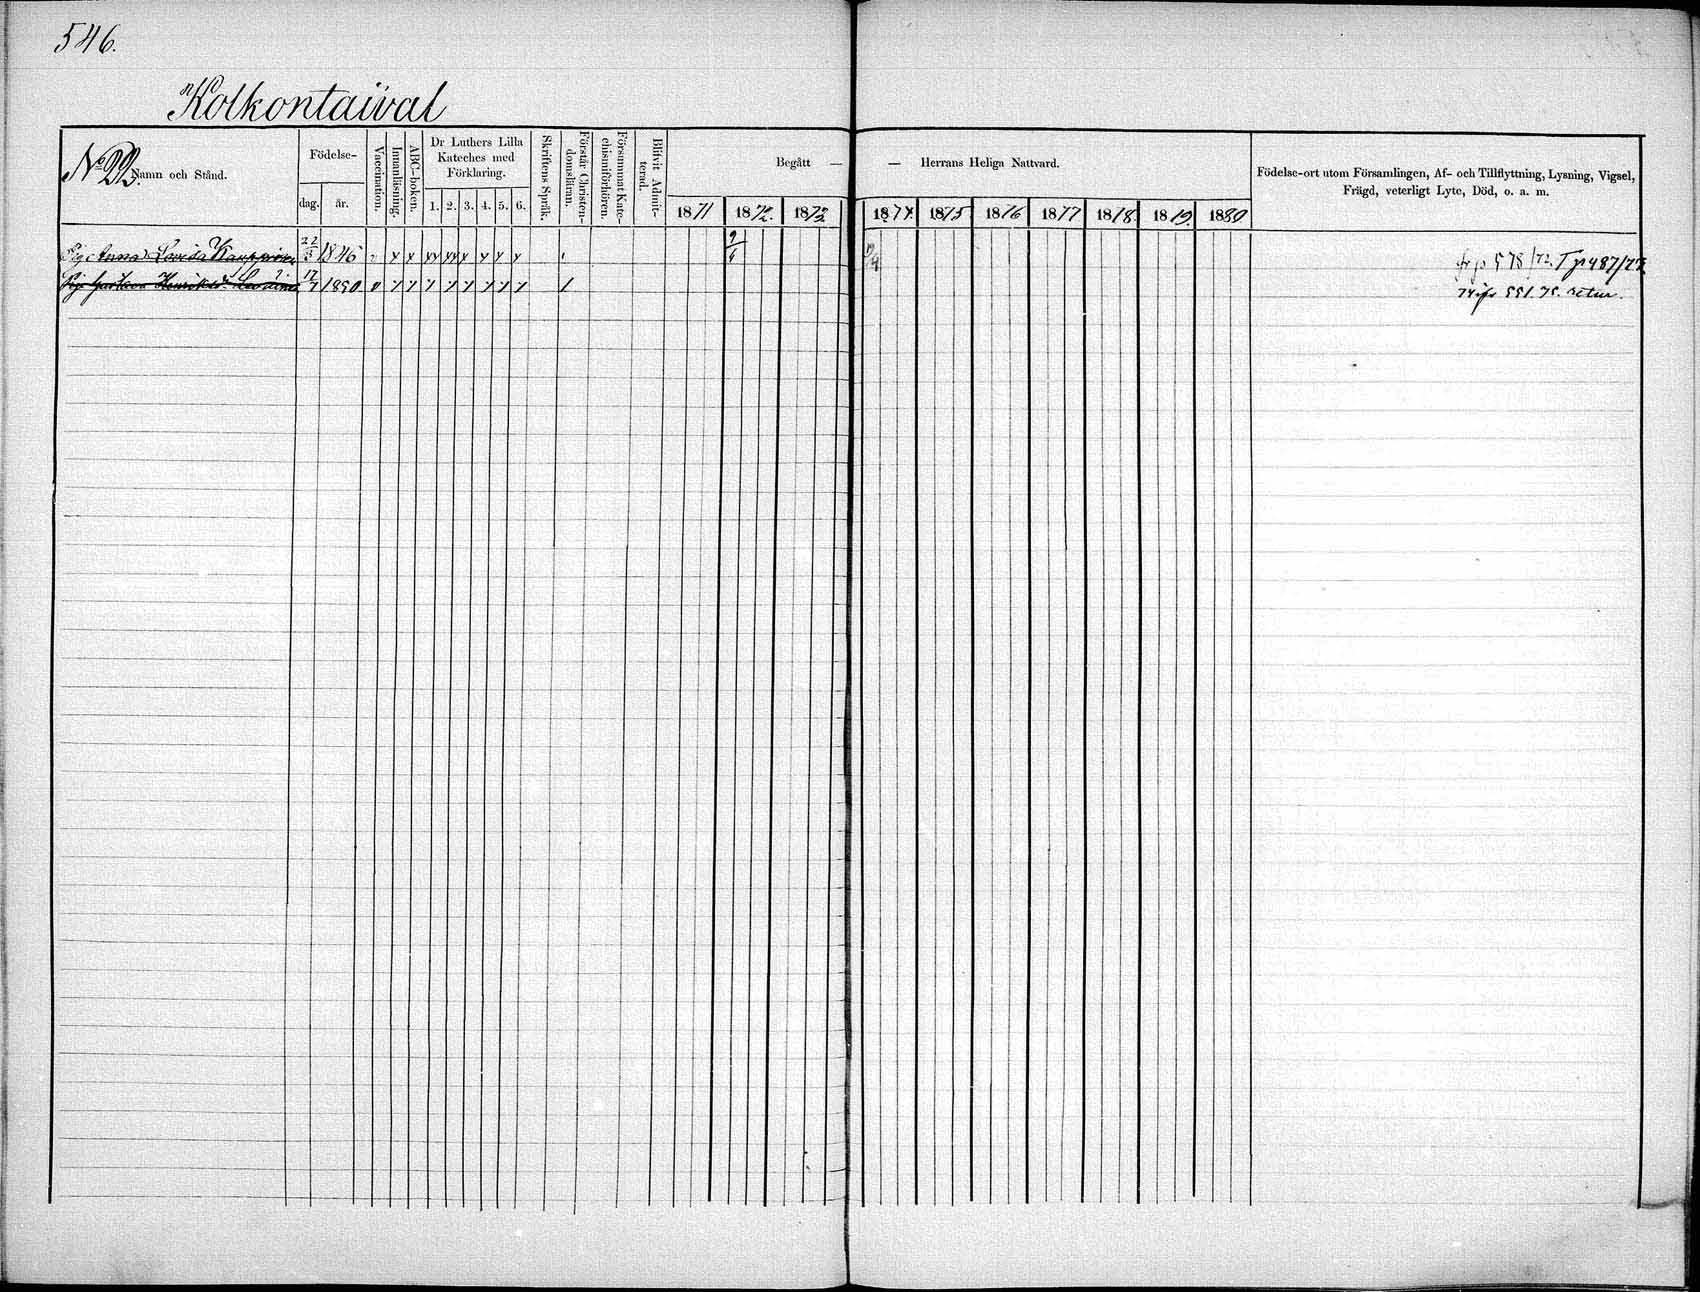 546.
Kolkontaival
No 22. Namn och Stånd.
Födelse-
dag. år.
Vaccination.
Innanläsning.
ABC-boken.
Dr Luthers Lilla
Kateches med
Förklaring.
1. 2. 3. 4. 5. 6.
Skriftens Språk.
Förstår Christen-
domsläran.
Försummat Kate-
chismiförhören.
Blifvit Admit-
terad.
Begått — — Herrans Heliga Nattvard.
1871 1872. 1873 1874. 1875 1876 1877 1878. 1879. 1880
Födelse-ort utom Församlingen, Af- och Tillflyttning, Lysning, Vigsel,
Frägd, veterligt Lyte, Död, o. a. m.
Pig. Anna Lovisa 1846 v x x xx xx x x x x 9/6 fr p 578/72. T p 487/73
Pig. Gustava Henriksd. 17/7 1850 v 551. 75. retur.